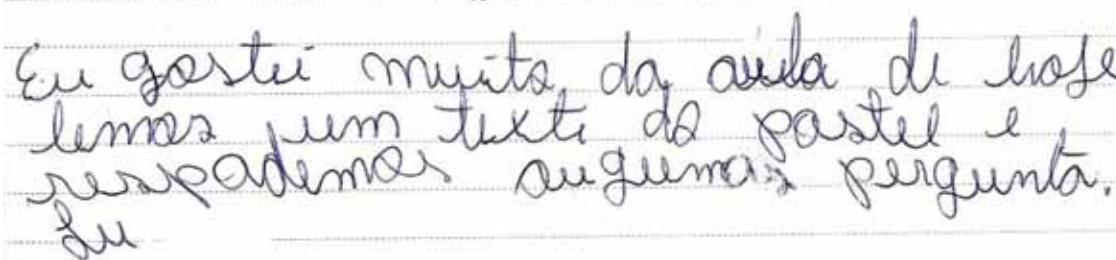 Eu gostei muito da aula de hoje
lemos um texto do pastel e
respademos augumas pergunta.
Lu